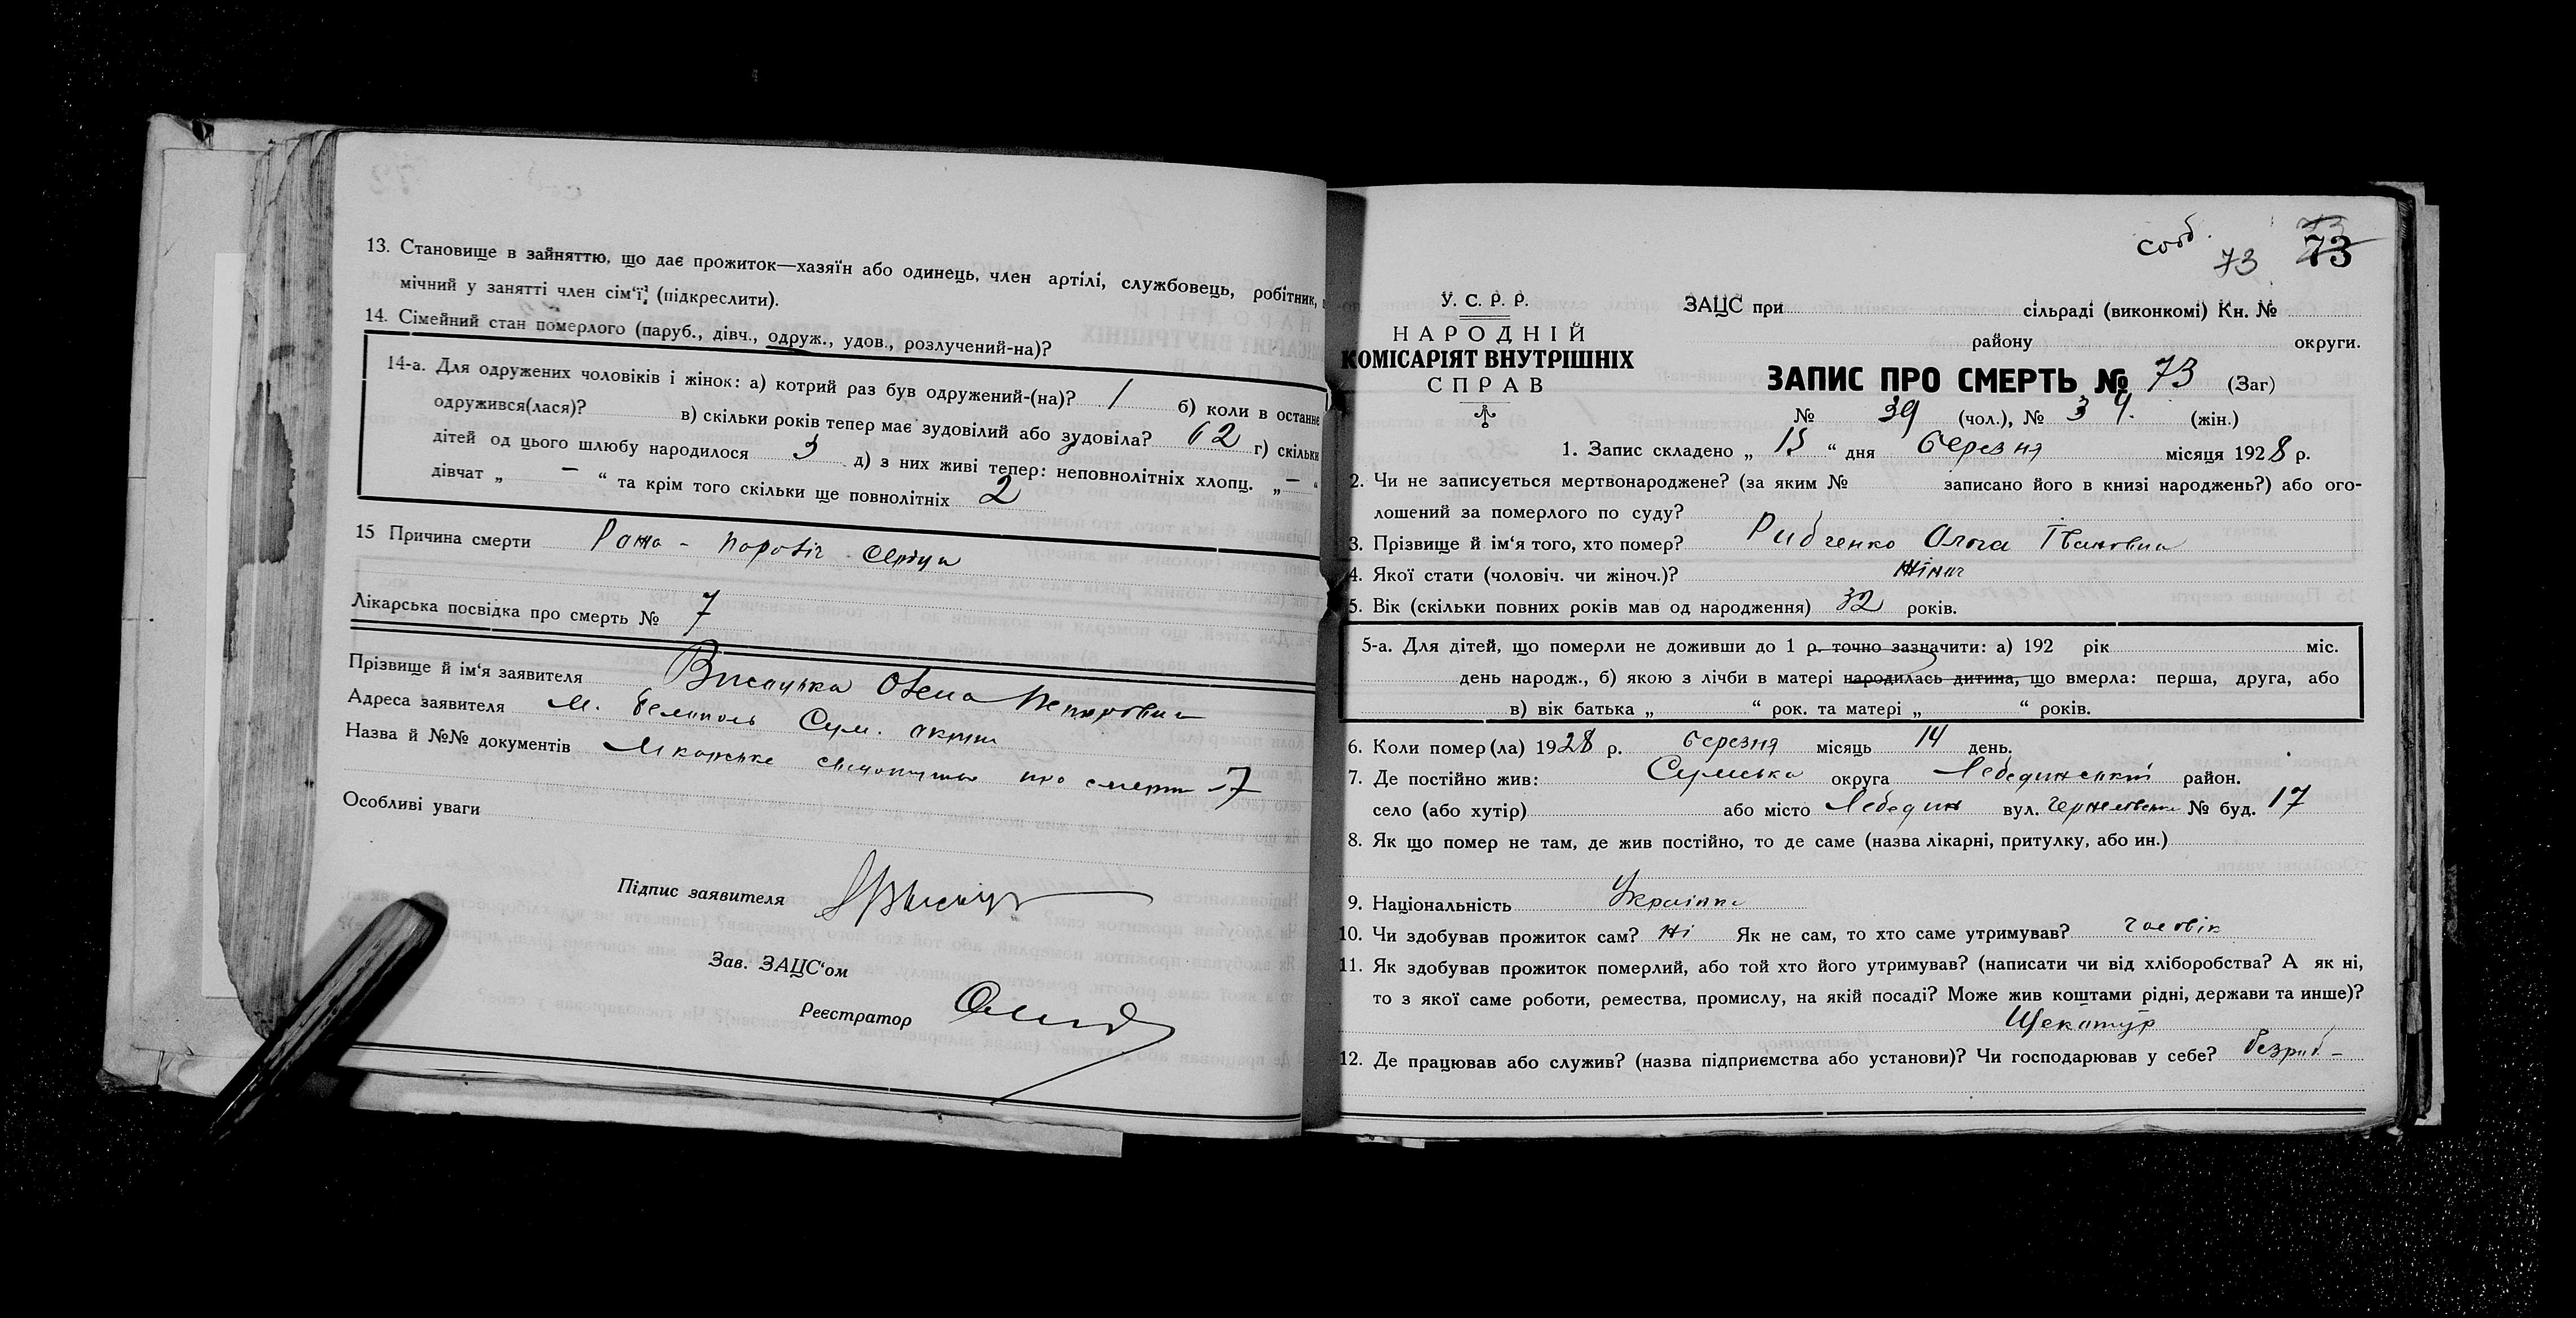 13. Становище в зайняттю, що дає прожиток—хазяїн або одинець, член артілі, службовець, робітник,
мічний у занятті член сім'ї, (підкреслити).
14. Сімейний стан померлого (паруб., дівч., одруж., удов., розлучений-на)?
14-а. Для одружених чоловіків і жінок: а) котрий раз був одружений-(на)? 1 б) коли в останнє
одружився(лася)? в) скільки років тепер має зудовілий або зудовіла? 62 г) скільки
дітей од цього шлюбу народилося 3 д) з них живі тепер: неповнолітніх хлопц. „ — “
дівчат „ — “ та крім того скільки ще повнолітніх 2
15 Причина смерти серця
Лікарська посвідка про смерть № 7
Прізвище й ім'я заявителя Висоцька Олена
Адреса заявителя м. Сум. округи
Назва й №№ документів Лікарське про смерть 7
Особливі уваги
Підпис заявителя
Зав. ЗАЦС'ом
Реєстратор
соб.
73 73
У. С. Р. Р.
НАРОДНІЙ
КОМІСАРІЯТ ВНУТРІШНІХ
СПРАВ
ЗАЦС при сільраді (виконкомі) Кн. №
району округи.
ЗАПИС ПРО СМЕРТЬ № 73 (Заг)
№ 39 (чол.), № 34. (жін.)
1. Запис складено „ 15 “ дня березня місяця 1928 р.
2. Чи не записується мертвонароджене? (за яким № записано його в книзі народжень?) або ого-
лошений за померлого по суду?
3. Прізвище й ім'я того, хто помер? Рибченко Ольга Івановна
4. Якої стати (чоловіч. чи жіноч.)? жіноч
5. Вік (скільки повних років мав од народження) 32 років.
5-а. Для дітей, що померли не доживши до 1 р. точно зазначити: а) 192 рік міс.
день народж., б) якою з лічби в матері народилась дитина, що вмерла: перша, друга, або
в) вік батька „ “ рок. та матері „ “ років.
6. Коли помер(ла) 1928 р. березня місяць 14 день.
7. Де постійно жив: Сумська округа Лебединський район.
село (або хутір) або місто Лебедин вул. № буд. 17
8. Як що помер не там, де жив постійно, то де саме (назва лікарні, притулку, або ин.)
9. Національність Українка
10. Чи здобував прожиток сам? ні Як не сам, то хто саме утримував? чоловік
11. Як здобував прожиток померлий, або той хто його утримував? (написати чи від хліборобства? А як ні,
то з якої саме роботи, ремества, промислу, на якій посаді? Може жив коштами рідні, держави та инше)?
Щекатур
12. Де працював або служив? (назва підприємства або установи)? Чи господарював у себе? безроб.-